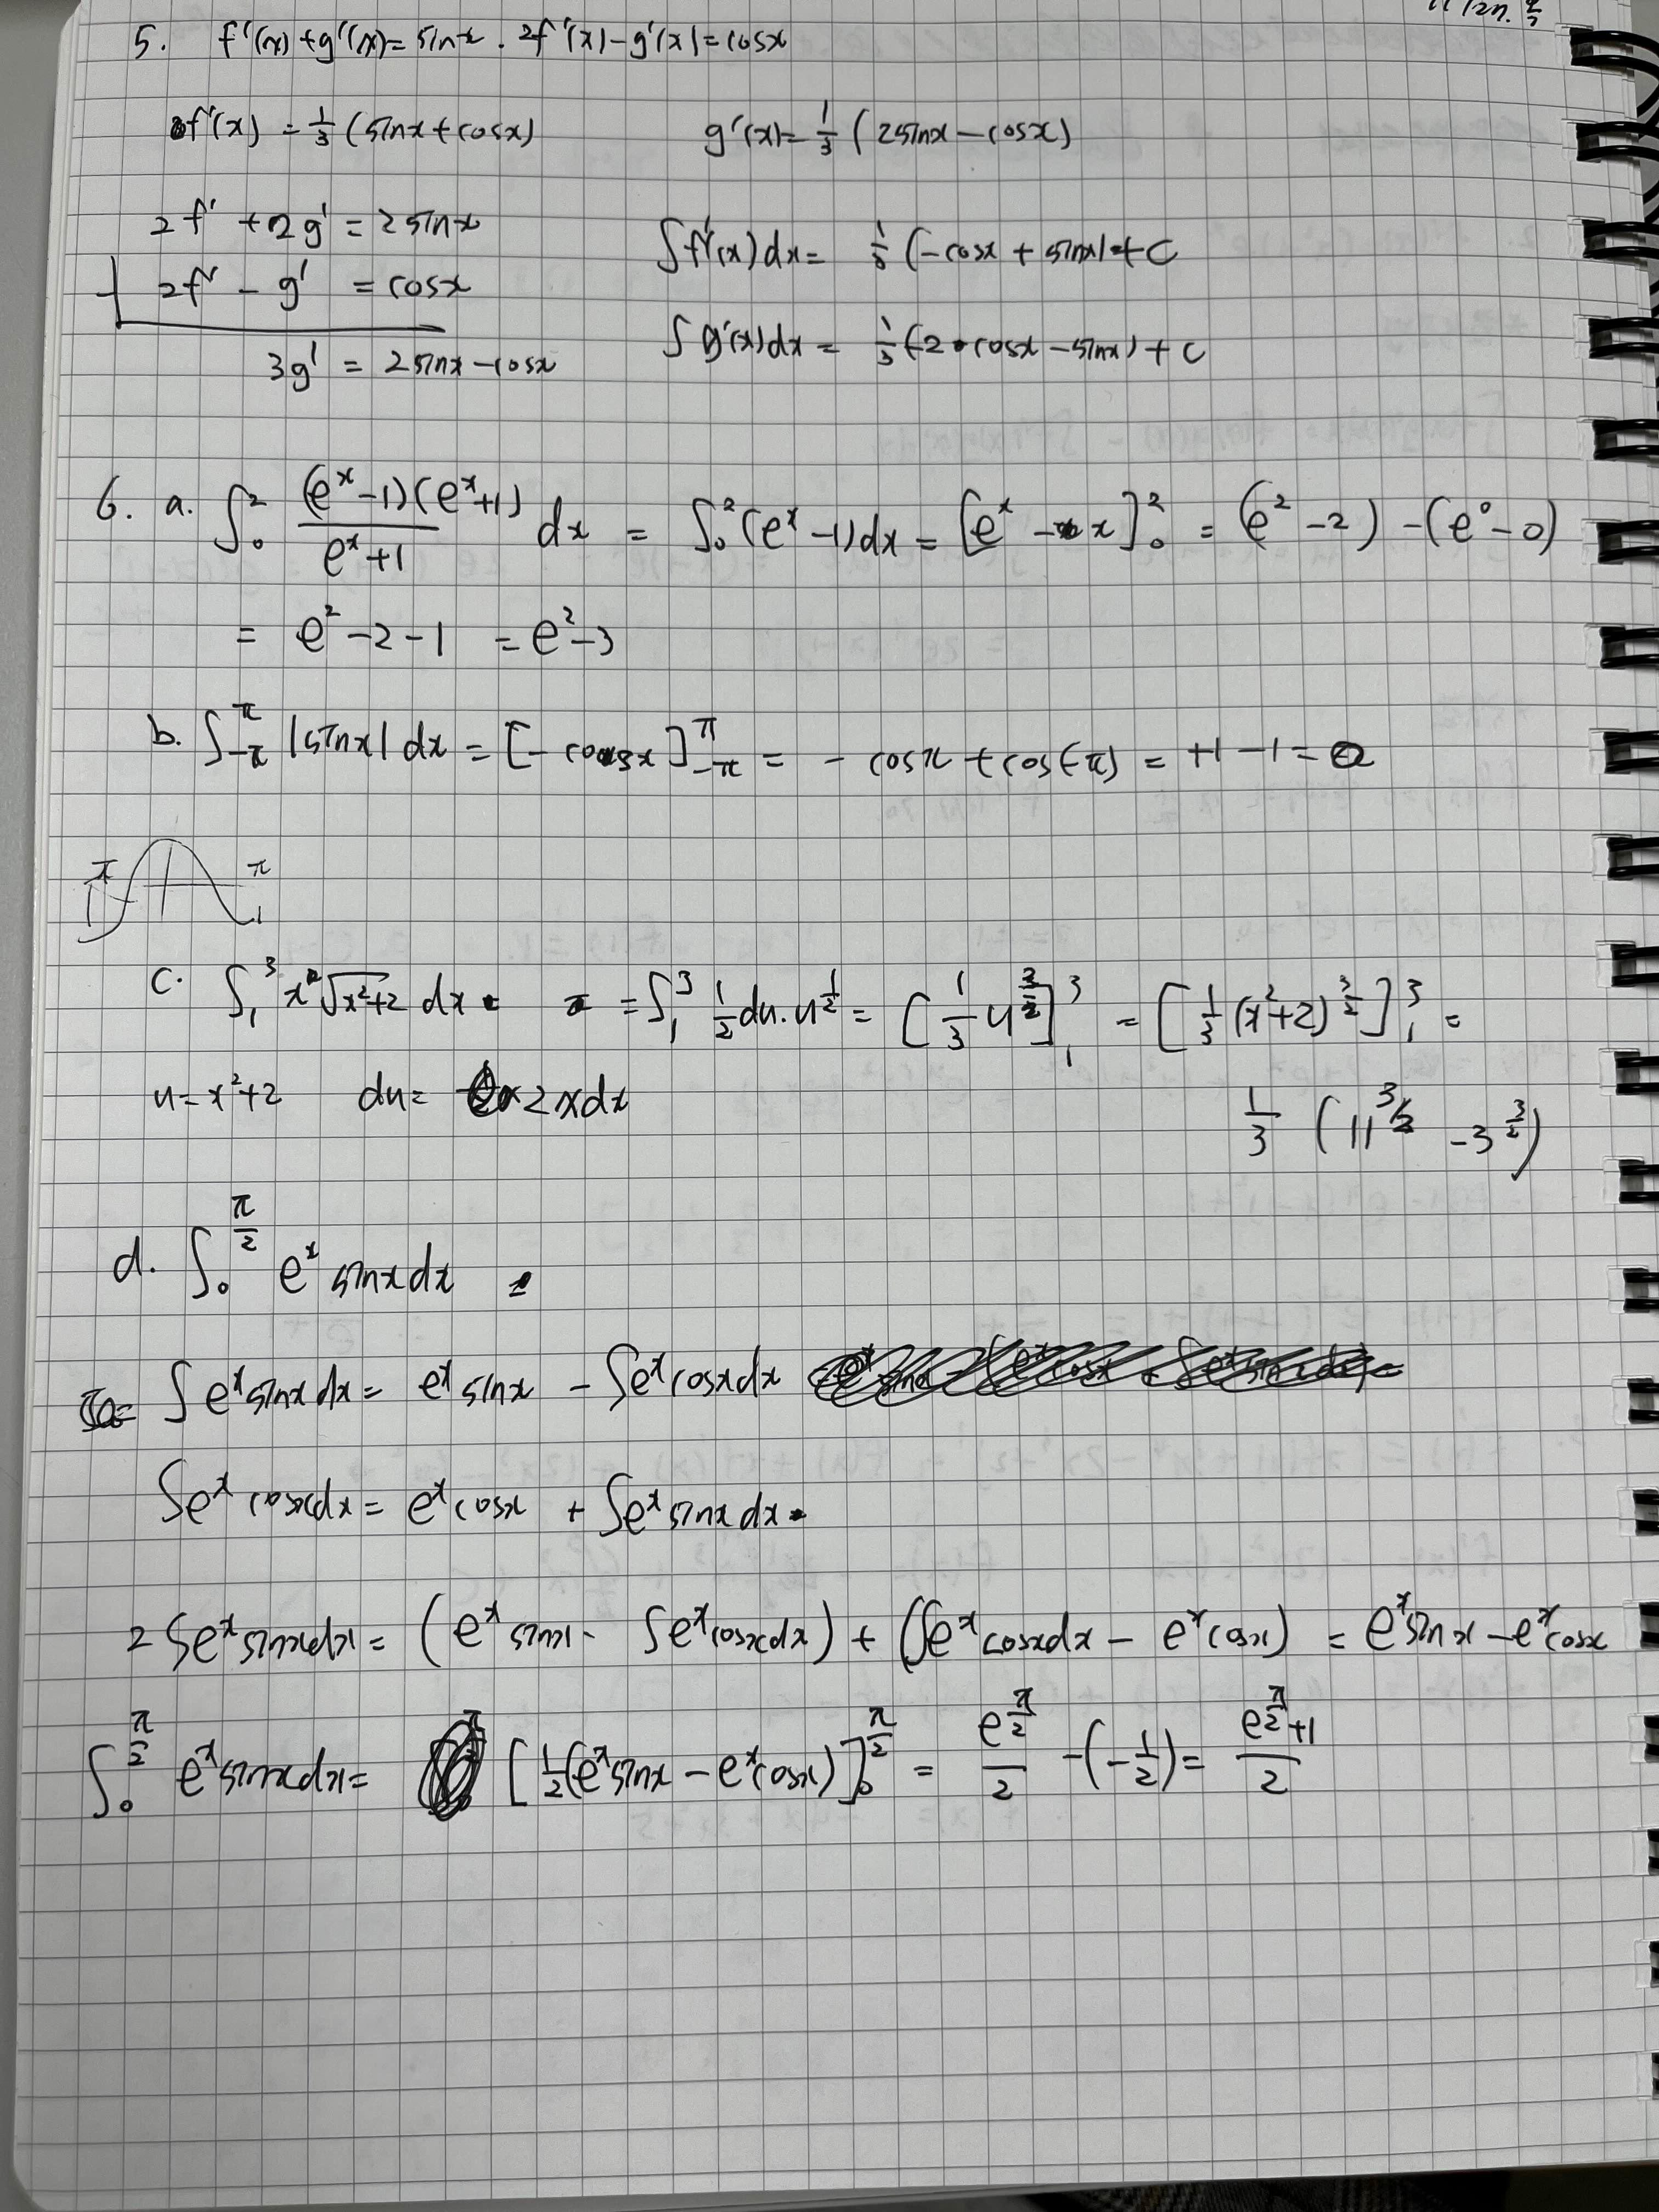 5. f'(x)+g'(x)=sinx. 2f'(x)-g'(x)=cosx
f'(x) = 1/3 (sinx+cosx) g'(x)= 1/3 (2sinx-cosx)
2f' +2g' = 2sinx ∫f'(x)dx= 1/3 (-cosx + sinx)+C
- 2f' - g' = cosx ∫g'(x)dx = 1/3 (-2cosx-sinx)+C
3g' = 2sinx-cosx
6. a. ∫₀² (eˣ-1)(eˣ+1)/(eˣ+1) dx = ∫₀²(eˣ-1)dx = [eˣ-x]₀² = (e²-2)-(e⁰-0)
= e²-2-1 = e²-3
b. ∫_{-π}^{π} |sinx| dx = [-cosx]_{-π}^{π} = -cosπ+cos(-π) = +1-1=0
π π
c. ∫₁³ x√(x²+2) dx = ∫₁³ 1/2 du. u^{1/2} = [1/3 u^{3/2}]₁³ = [1/3 (x²+2)^{3/2}]₁³ =
u=x²+2 du= 2xdx 1/3 (11^{3/2} -3^{3/2})
d. ∫₀^{π/2} eˣ sinx dx =
∫eˣsinxdx = eˣ sinx - ∫eˣcosxdx
∫eˣ cosxdx= eˣcosx + ∫eˣsinxdx
2∫eˣsinxdx= (eˣ sinx- ∫eˣcosxdx) + (∫eˣcosxdx - eˣcosx) = eˣsinx-eˣcosx
∫₀^{π/2} eˣsinxdx= [1/2(eˣsinx-eˣcosx)]₀^{π/2} = e^{π/2}/2 -(-1/2)= (e^{π/2}+1)/2